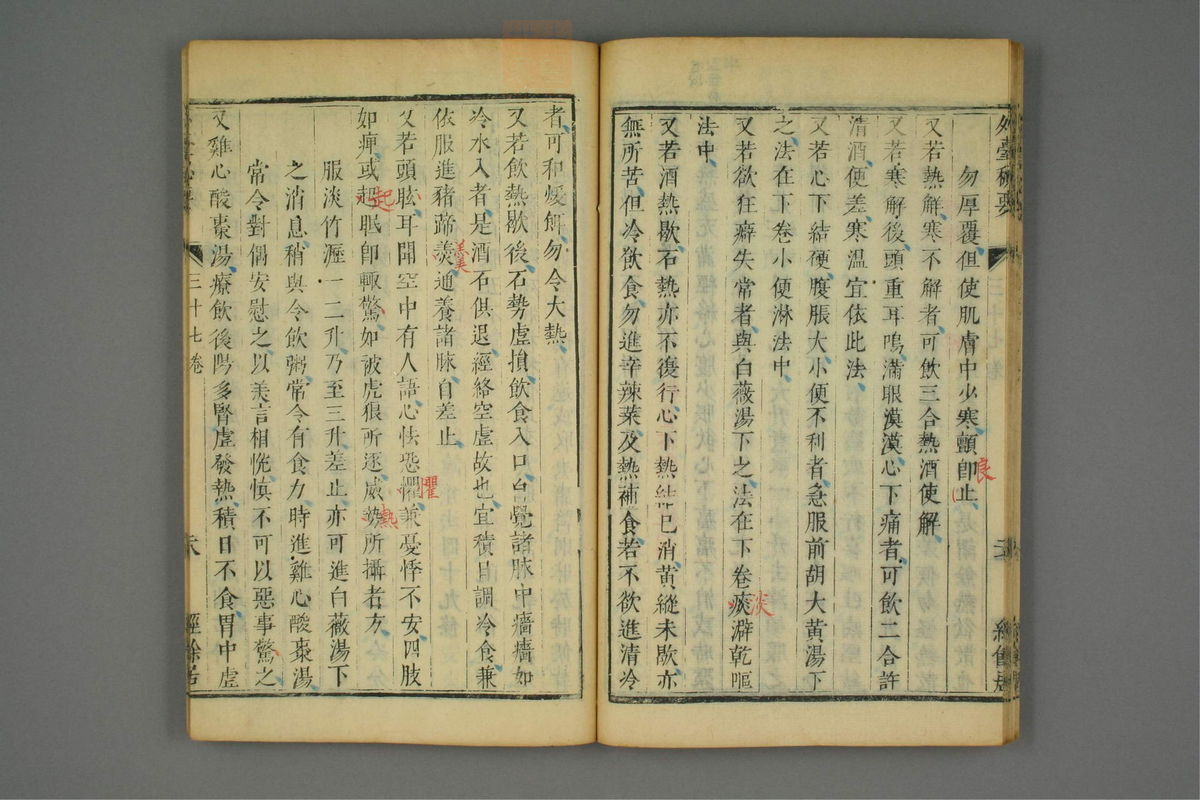 外臺秘要
勿厚覆但使肌膚中少寒顫即止
又若熱解寒不解者可飲三合熱酒使解
又若寒解後頭重耳鳴滿眼漠漠心下痛者可飲二合許
清酒便差寒温宜依此法
又若心下結硬腹脹大小便不利者急服前胡大黃湯下
之法在下卷小便淋法中
又若欲狂癖失常者與白薇湯下之法在下卷痰澼乾嘔
法中
又若酒熱歇石熱亦不復行心下熱結已消黃縱未歇亦
無所苦但冷飲食勿進辛辣菜及熱補食若不欲進清冷
者可和煖餌勿令大熱
又若飲熱歇後石勢虛損飲食入口白覺諸脉中𤺋𤺋如
冷水入者是酒石俱退經絡空虛故也宜積日調冷食兼
依服進豬蹄羹通養諸脉自差止
又若頭眩耳聞空中有人語心怯恐懼兼憂悸不安四肢
如痺或起眠即輒驚如被虎狼所逐威勢所攝者方
服淡竹瀝一二升乃至三升差止亦可進白薇湯下
之消息稍與令飲粥常令有食力時進雞心酸棗湯
常令對偶安慰之以美言相悅慎不可以惡事驚之
又雞心酸棗湯療飲後陽多腎虛發熱積日不食胃中虛
三十七卷
經餘居
良
淡
羹
懼
起
熱